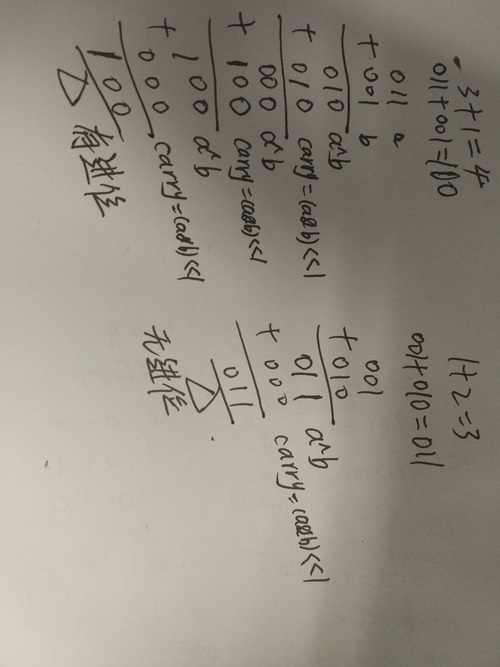 3+1=4
011+001=100
011 a
+001 b
010 a^b
+ 010 carry=(a&b)<<1
000 a^b
+ 100 carry=(a&b)<<1
100 a^b
+ 000 carry=(a&b)<<1
100
有进位
1+2=3
001+010=011
001
+010
011 a^b
+ 000 carry=(a&b)<<1
011
无进位